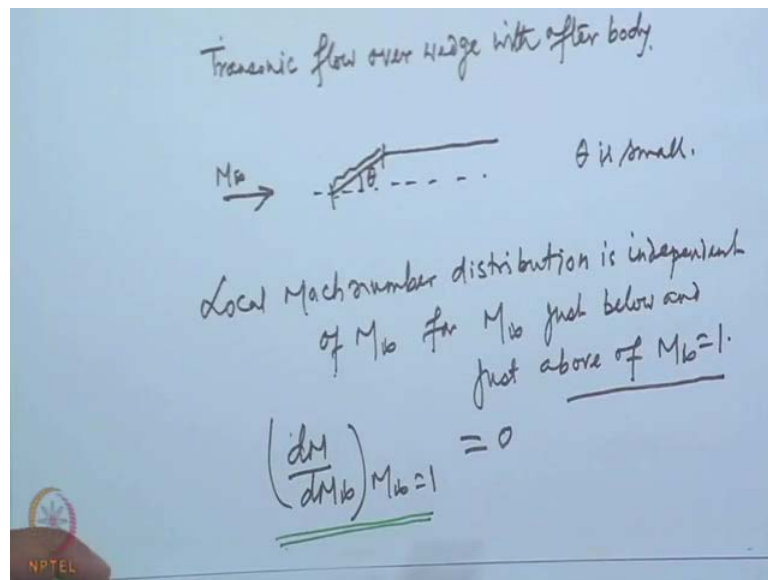 Transonic flow over wedge with after body.
M∞
θ
θ is small.
Local Mach number distribution is independent
of M∞ for M∞ just below and
just above of M∞=1.
(dM/dM∞) M∞=1 = 0
NPTEL